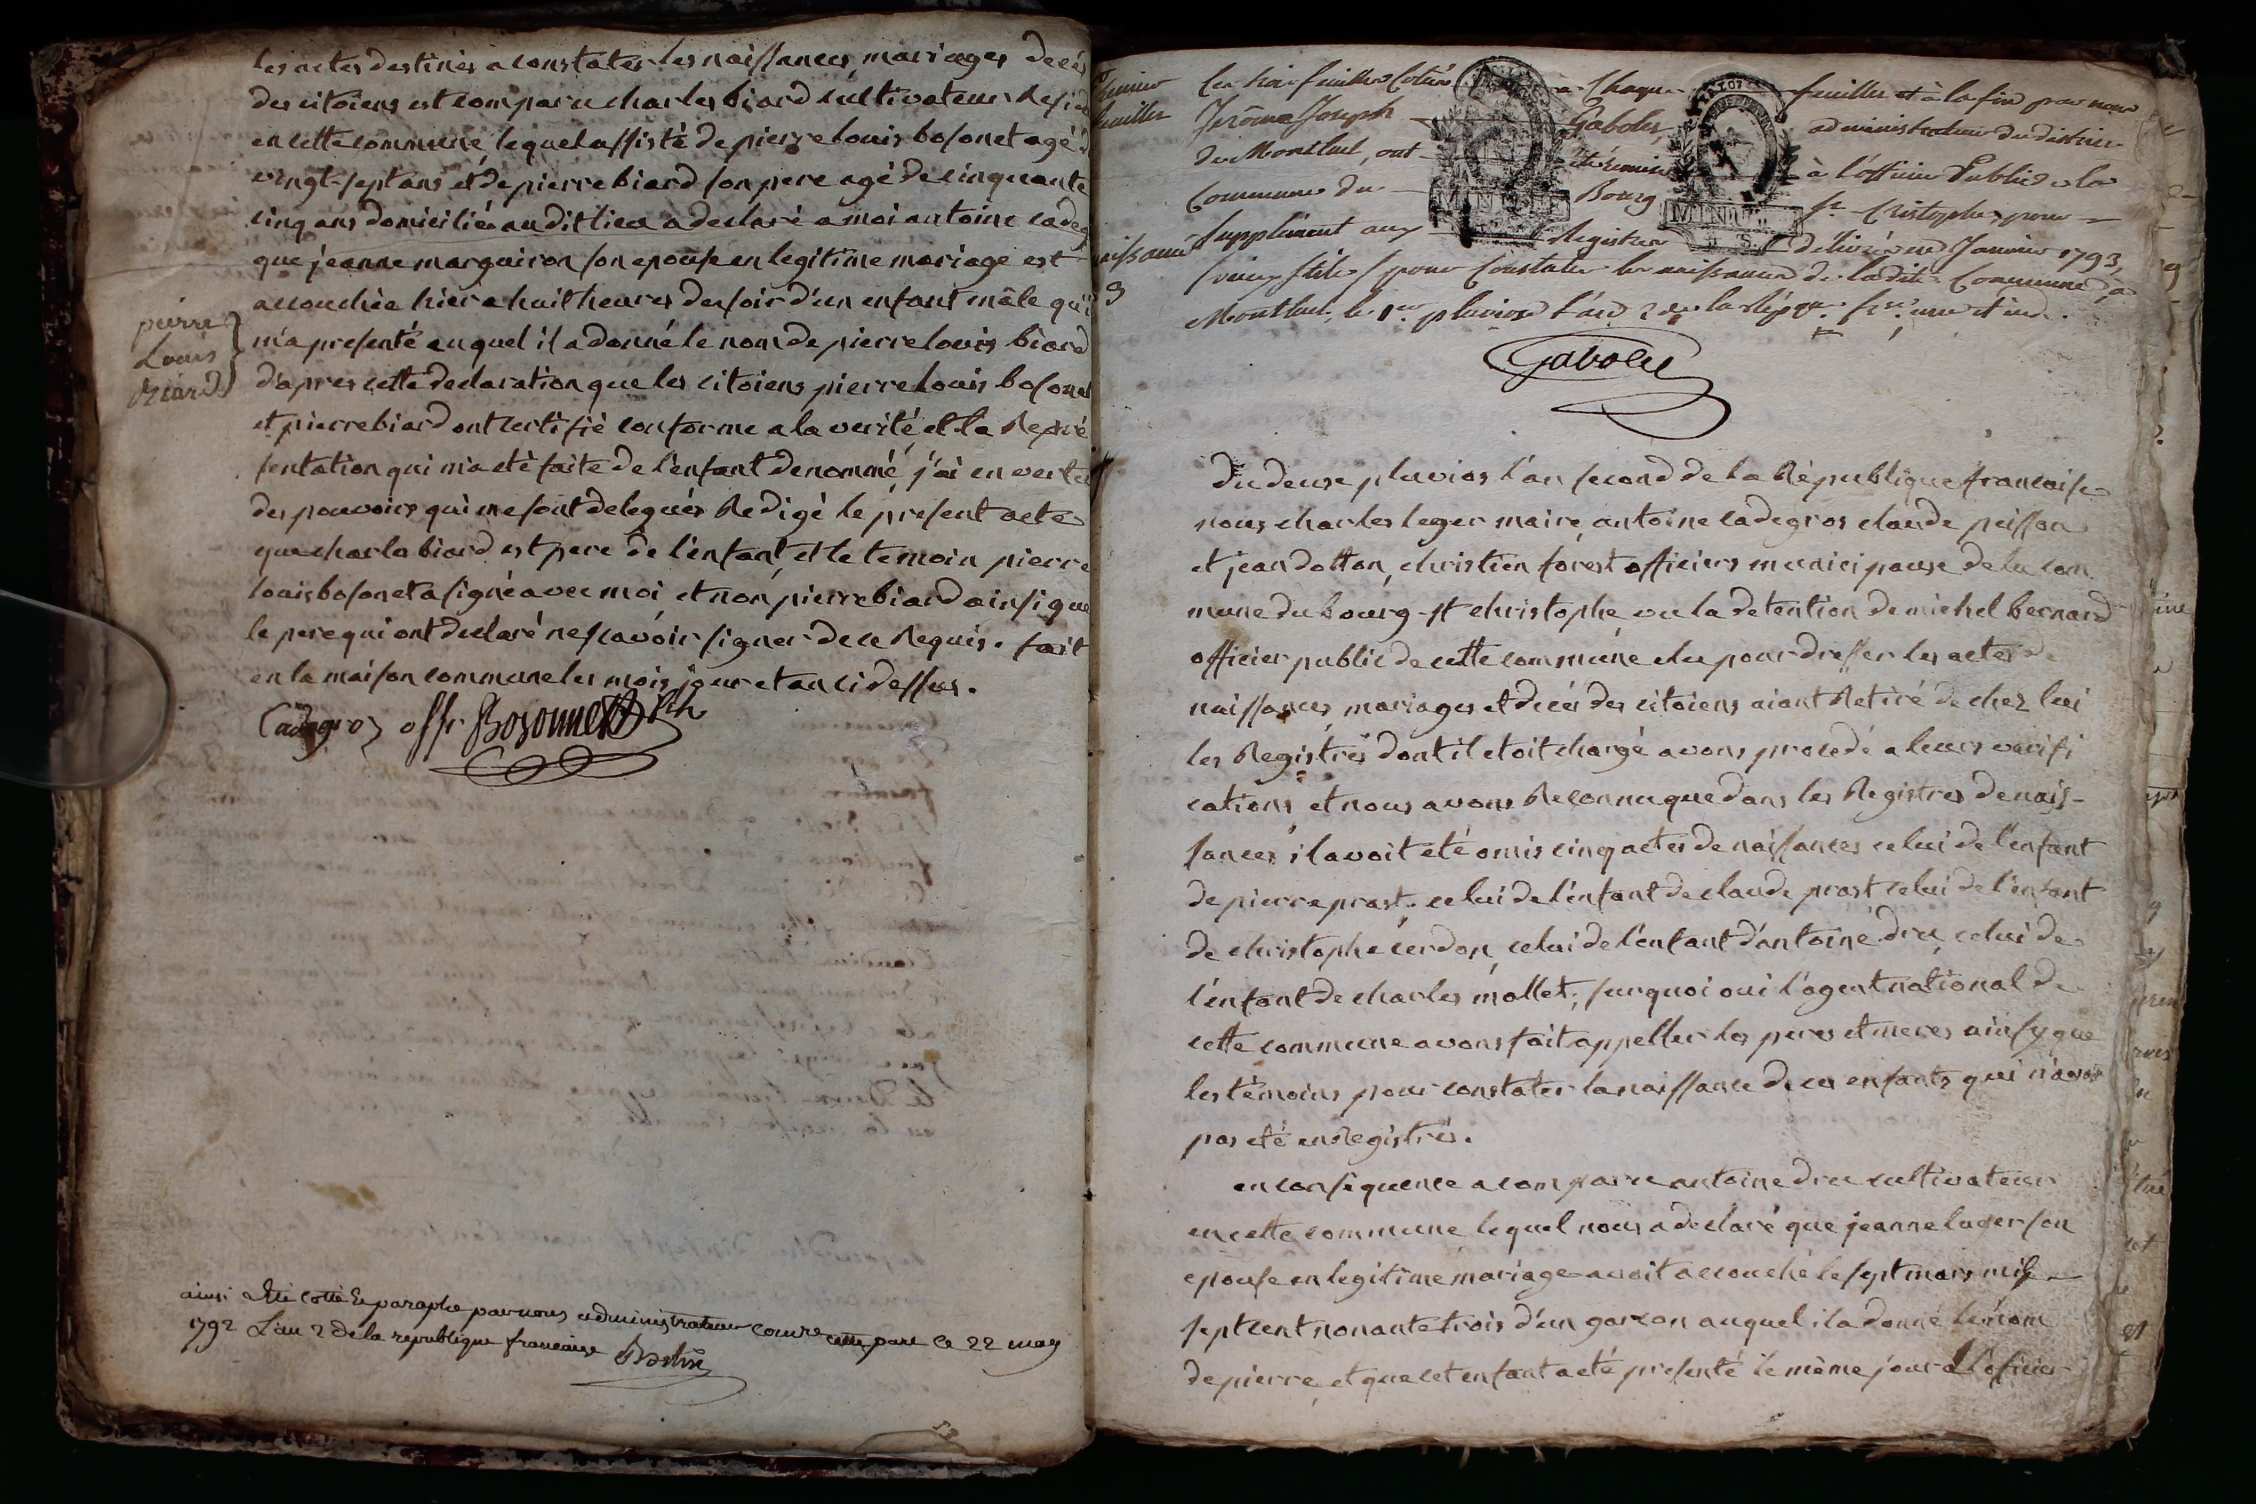 les actes destinés a constater les naissances, mariages décés
des citoiens est comparu charles biard cultivateur Resid
en cette commune, lequel assisté de pierre louis bosonet agé d
vingt-sept ans et de pierre biard son pere agé de cinquante
cinq ans domiciliés audit lieu a declaré a moi antoine cadeg
que jeanne marguiron son epouse en legitime mariage est
accouchée hier a huit heures du soir d'un enfant mâle qu'il
m'a presenté auquel il a donné le nom de pierre louis biard
d'apres cette declaration que les citoiens pierre louis bosonet
et pierre biard ont certifié conforme a la verité et la Repré
sentation qui m'a eté faite de l'enfant denommé, j'ai en vertu
des pouvoirs qui me sont delegués Redigé le present acte
que charle biard est pere de l'enfant, et le temoin pierre
louis bosonet a signé avec moi et non pierre biard ainsi que
le pere qui ont declaré ne scavoir signer de ce Requis. fait
en la maison commune les mois jour et an ci dessus.
pierre
Louis
Biard
Cadegros off. Bosonnet
ainsi Eté cotté Et paraphé par nous administrateur cette part ce 22 may
1792 L'an 2 de la republique francaise
12
feuiller
Les huit feuilles Cotées à Chaque feuillet et à la fin par nous
Jerôme Joseph Gabolet, administrateur du district
de Montluel, ont été remis à l'officier Public de la
Commune du Bourg St. Cristophe, pour
supplément aux Registres délivrés en Janvier 1793,
(vieux stile) pour Constater les naissances de ladite Commune, à
Montluel, le 1er. pluviose l'an 2 de la Répque. frse. une et ind.
naissance
3
Gabolet
Du deuxe pluvios l'an second de la République francaise
nous charles leger maire, antoine cadegros claude peisson
et jean dotton, christien forest officiers municipaux de la com
mune du bourg-st christophe vu la detention de michel bernard
officier public de cette commune elu pour dresser les actes de
naissances, mariages et decés des citoiens aiant Retiré de chez lui
les Registres dont il etoit chargé avons procedé a leurs verifi
cations et nous avons Reconnu que dans les Registres de nais-
sances il avoit eté omis cinq actes de naissances celui de l'enfant
de pierre prost, celui de l'enfant de claude prost celui de l'enfant
de christophe cerdon, celui de l'enfant d'antoine dru, celui de
l'enfant de charles mollet; surquoi oui l'agent national de
cette commune avons fait appeller les peres et meres ainsy que
les témoins pour constater la naissance de ces enfants qui n'avoit
pas eté enregistrés.
en consequence a comparu antoine dru cultivateur
en cette commune lequel nous a declaré que jeanne luger son
epouse en legitime mariage avoit accouché le sept mars mil
sept cent nonante trois d'un garzon auquel il a donné le nom
de pierre, et que cet enfant a eté presenté le même jour a l'officier